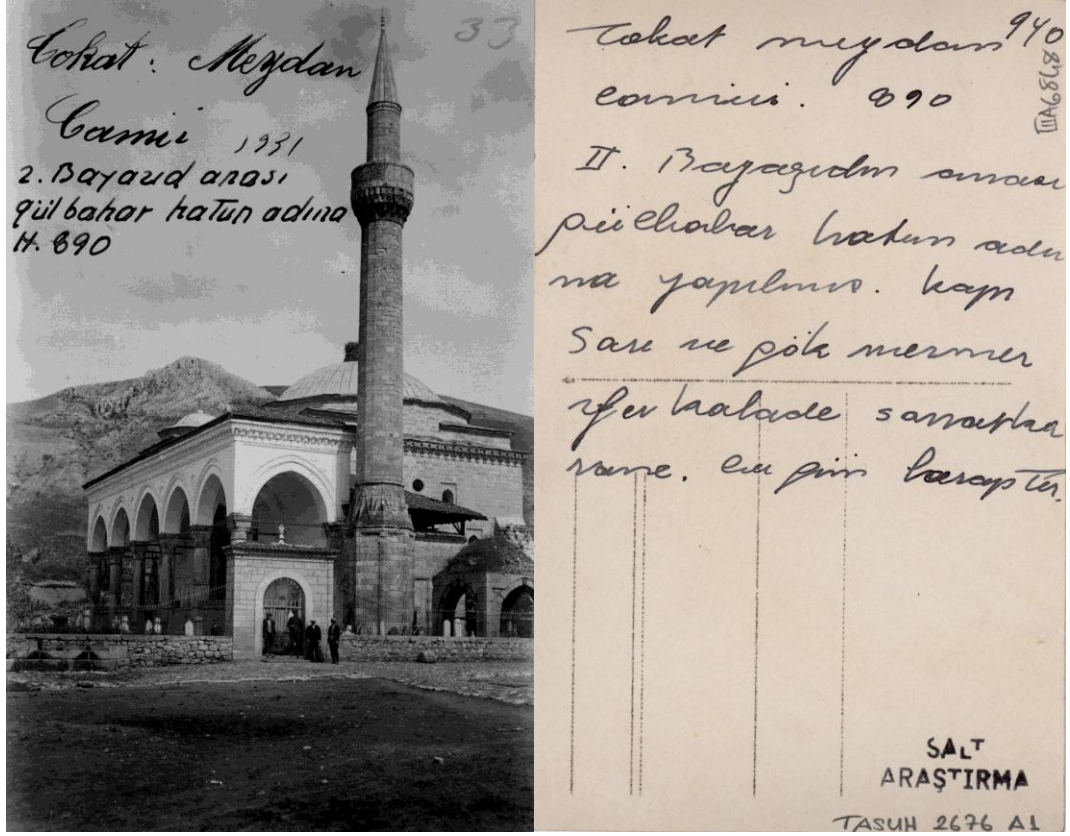 33
Tokat : Meydan
Camii 1931
2. Bayazıd anası
gülbahar hatun adına
H. 890
940
IIIA6848
Tokat meydan
camii. 890
II. Bayazıdın anası
gülbahar hatun adı
na yapılmış. kapı
Sarı ve gök mermer
fevkalade sanatkâ
rane. bu gün haraptır.
SALT
ARAŞTIRMA
TASUH 2676 A1